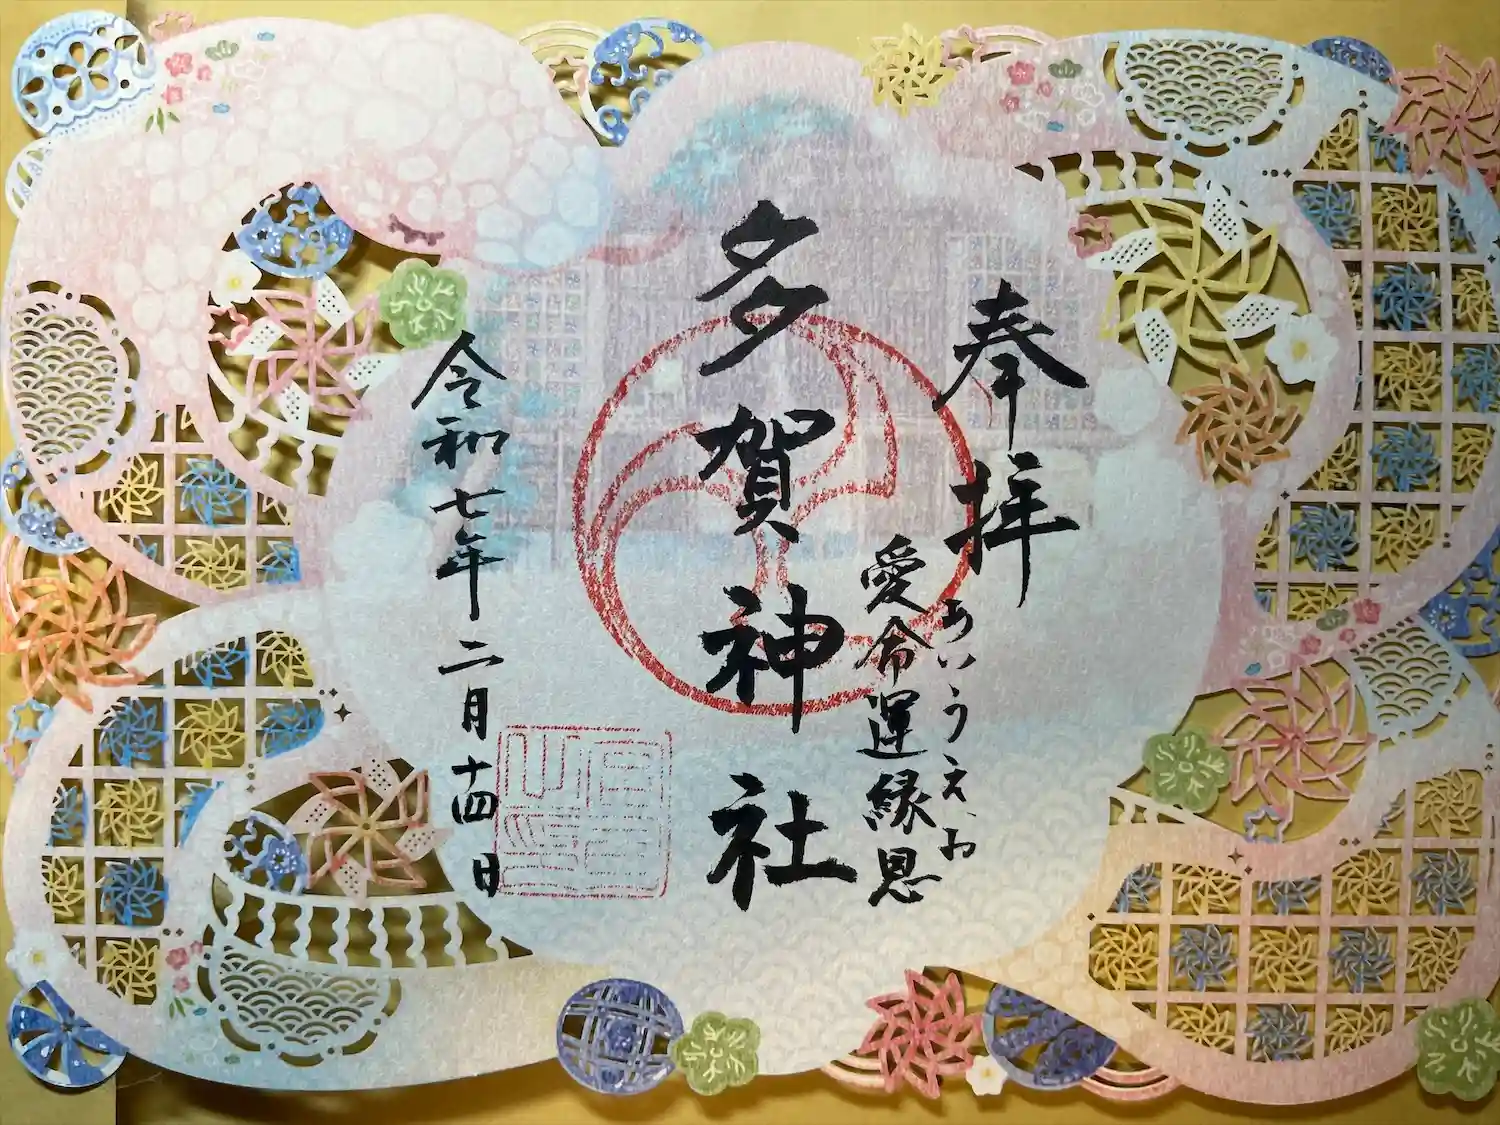 奉拝
あいうえお
愛命運縁恩
多賀神社
令和七年二月十四日